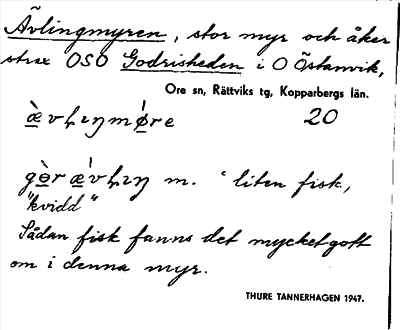 Ävlingmyren, stor myr och åker
strax OSO Godrisheden i O Östanvik,
Ore sn, Rättviks tg, Kopparbergs län.
20
m. "liten fisk,
"kvidd"
Sådan fisk fanns det mycket gott
om i denna myr.
THURE TANNERHAGEN 1947.